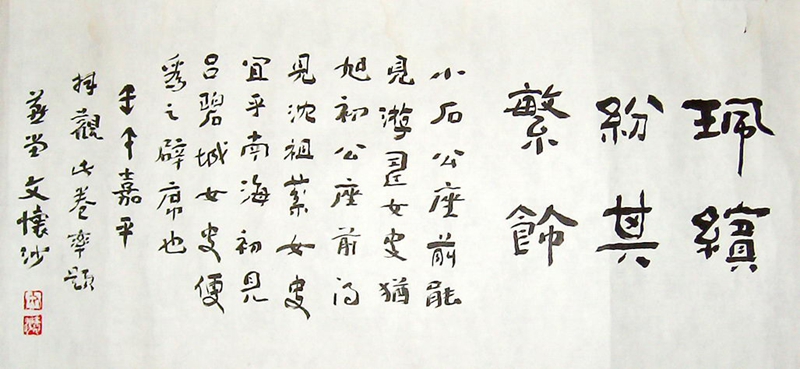 珮繽
紛其
繁飾
小石公座前能
見游女史猶
旭初公座前得
見沈祖棻女史
宜乎南海初見
呂碧城女史便
為之辟席也
壬午嘉平
拜觀此卷率題
燕堂文懷沙